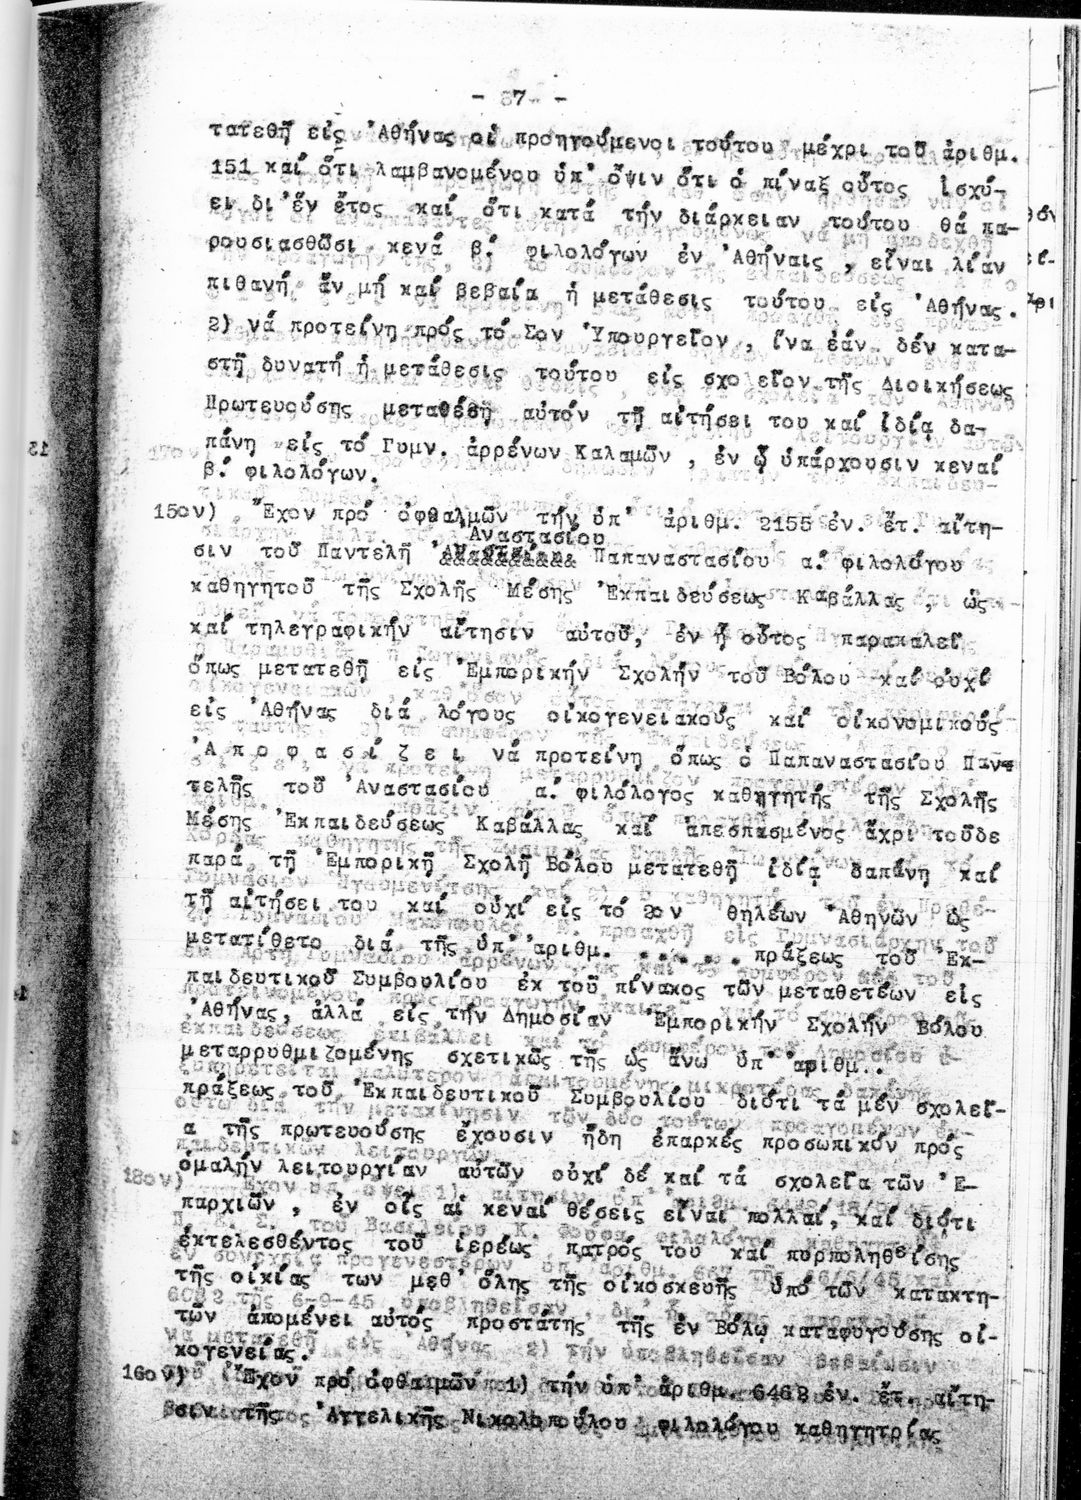 - 87 -
τατεθῆ εἰς Ἀθήνας οἱ προηγούμενοι τούτου μέχρι τοῦ ἀριθμ.
151 καί ὅτι λαμβανομένου ὑπ' ὄψιν ὅτι ὁ πίναξ οὗτος ἰσχύ-
ει δι' ἕν ἔτος καί ὅτι κατά τήν διάρκειαν τούτου θά πα-
ρουσιασθῶσι κενά β.' φιλολόγων ἐν Ἀθήναις , εἶναι λίαν
πιθανή ἄν μή καί βεβαία ἡ μετάθεσις τούτου εἰς Ἀθήνας.
2) νά προτείνη πρός τό Σον Ὑπουργεῖον , ἵνα ἐάν δέν κατα-
στῆ δυνατή ἡ μετάθεσις τούτου εἰς σχολεῖον τῆς Διοικήσεως
Πρωτευούσης μεταθέση αὐτόν τῇ αἰτήσει του καί ἰδίᾳ δα-
πάνη εἰς τό Γυμν. ἀρρένων Καλαμῶν , ἐν ᾧ ὑπάρχουσιν κεναί
β.' φιλολόγων.
15ον) Ἔχον πρό ὀφθαλμῶν τήν ὑπ' ἀριθμ. 2155 ἐν. ἔτ. αἴτη-
Ἀναστασίου
σιν τοῦ Παντελῆ Παπαναστασίου α.' φιλολόγου
καθηγητοῦ τῆς Σχολῆς Μέσης Ἐκπαιδεύσεως Καβάλλας , ὡς
καί τηλεγραφικήν αἴτησιν αὐτοῦ, ἐν ᾗ οὗτος παρακαλεῖ
ὅπως μετατεθῆ εἰς Ἐμπορικήν Σχολήν τοῦ Βόλου καί οὐχί
εἰς Ἀθήνας διά λόγους οἰκογενειακούς καί οἰκονομικούς
Ἀ π ο φ α σ ί ζ ε ι νά προτείνη ὅπως ὁ Παπαναστασίου Παν-
τελῆς τοῦ Ἀναστασίου α.' φιλόλογος καθηγητής τῆς Σχολῆς
Μέσης Ἐκπαιδεύσεως Καβάλλας καί ἀπεσπασμένος ἄχρι τοῦδε
παρά τῇ Ἐμπορικῇ Σχολῇ Βόλου μετατεθῆ ἰδίᾳ δαπάνη καί
τῇ αἰτήσει του καί οὐχί εἰς τό 2ον θηλέων Ἀθηνῶν ὡς
μετατίθετο διά τῆς ὑπ' ἀριθμ. ...... πράξεως τοῦ Ἐκ-
παιδευτικοῦ Συμβουλίου ἐκ τοῦ πίνακος τῶν μεταθετέων εἰς
Ἀθήνας, ἀλλά εἰς τήν Δημοσίαν Ἐμπορικήν Σχολήν Βόλου
μεταρρυθμιζομένης σχετικῶς τῆς ὡς ἄνω ὑπ' ἀριθμ..
πράξεως τοῦ Ἐκπαιδευτικοῦ Συμβουλίου διότι τά μέν σχολεῖ-
α τῆς πρωτευούσης ἔχουσιν ἤδη ἐπαρκές προσωπικόν πρός
ὁμαλήν λειτουργίαν αὐτῶν οὐχί δέ καί τά σχολεῖα τῶν Ἐ-
παρχιῶν , ἐν οἷς αἱ κεναί θέσεις εἶναι πολλαί, καί διότι
ἐκτελεσθέντος τοῦ ἱερέως πατρός του καί πυρποληθείσης
τῆς οἰκίας των μεθ' ὅλης τῆς οἰκοσκευῆς ὑπό τῶν κατακτη-
τῶν ἀπομένει αὐτός προστάτης τῆς ἐν Βόλῳ καταφυγούσης οἰ-
κογενείας.
16ον) Ἔχον πρό ὀφθαλμῶν 1) τήν ὑπ' ἀριθμ. 6468 ἐν. ἔτ. αἴτη-
σιν τῆς Ἀγγελικῆς Νικολοπούλου φιλολόγου καθηγητρίας